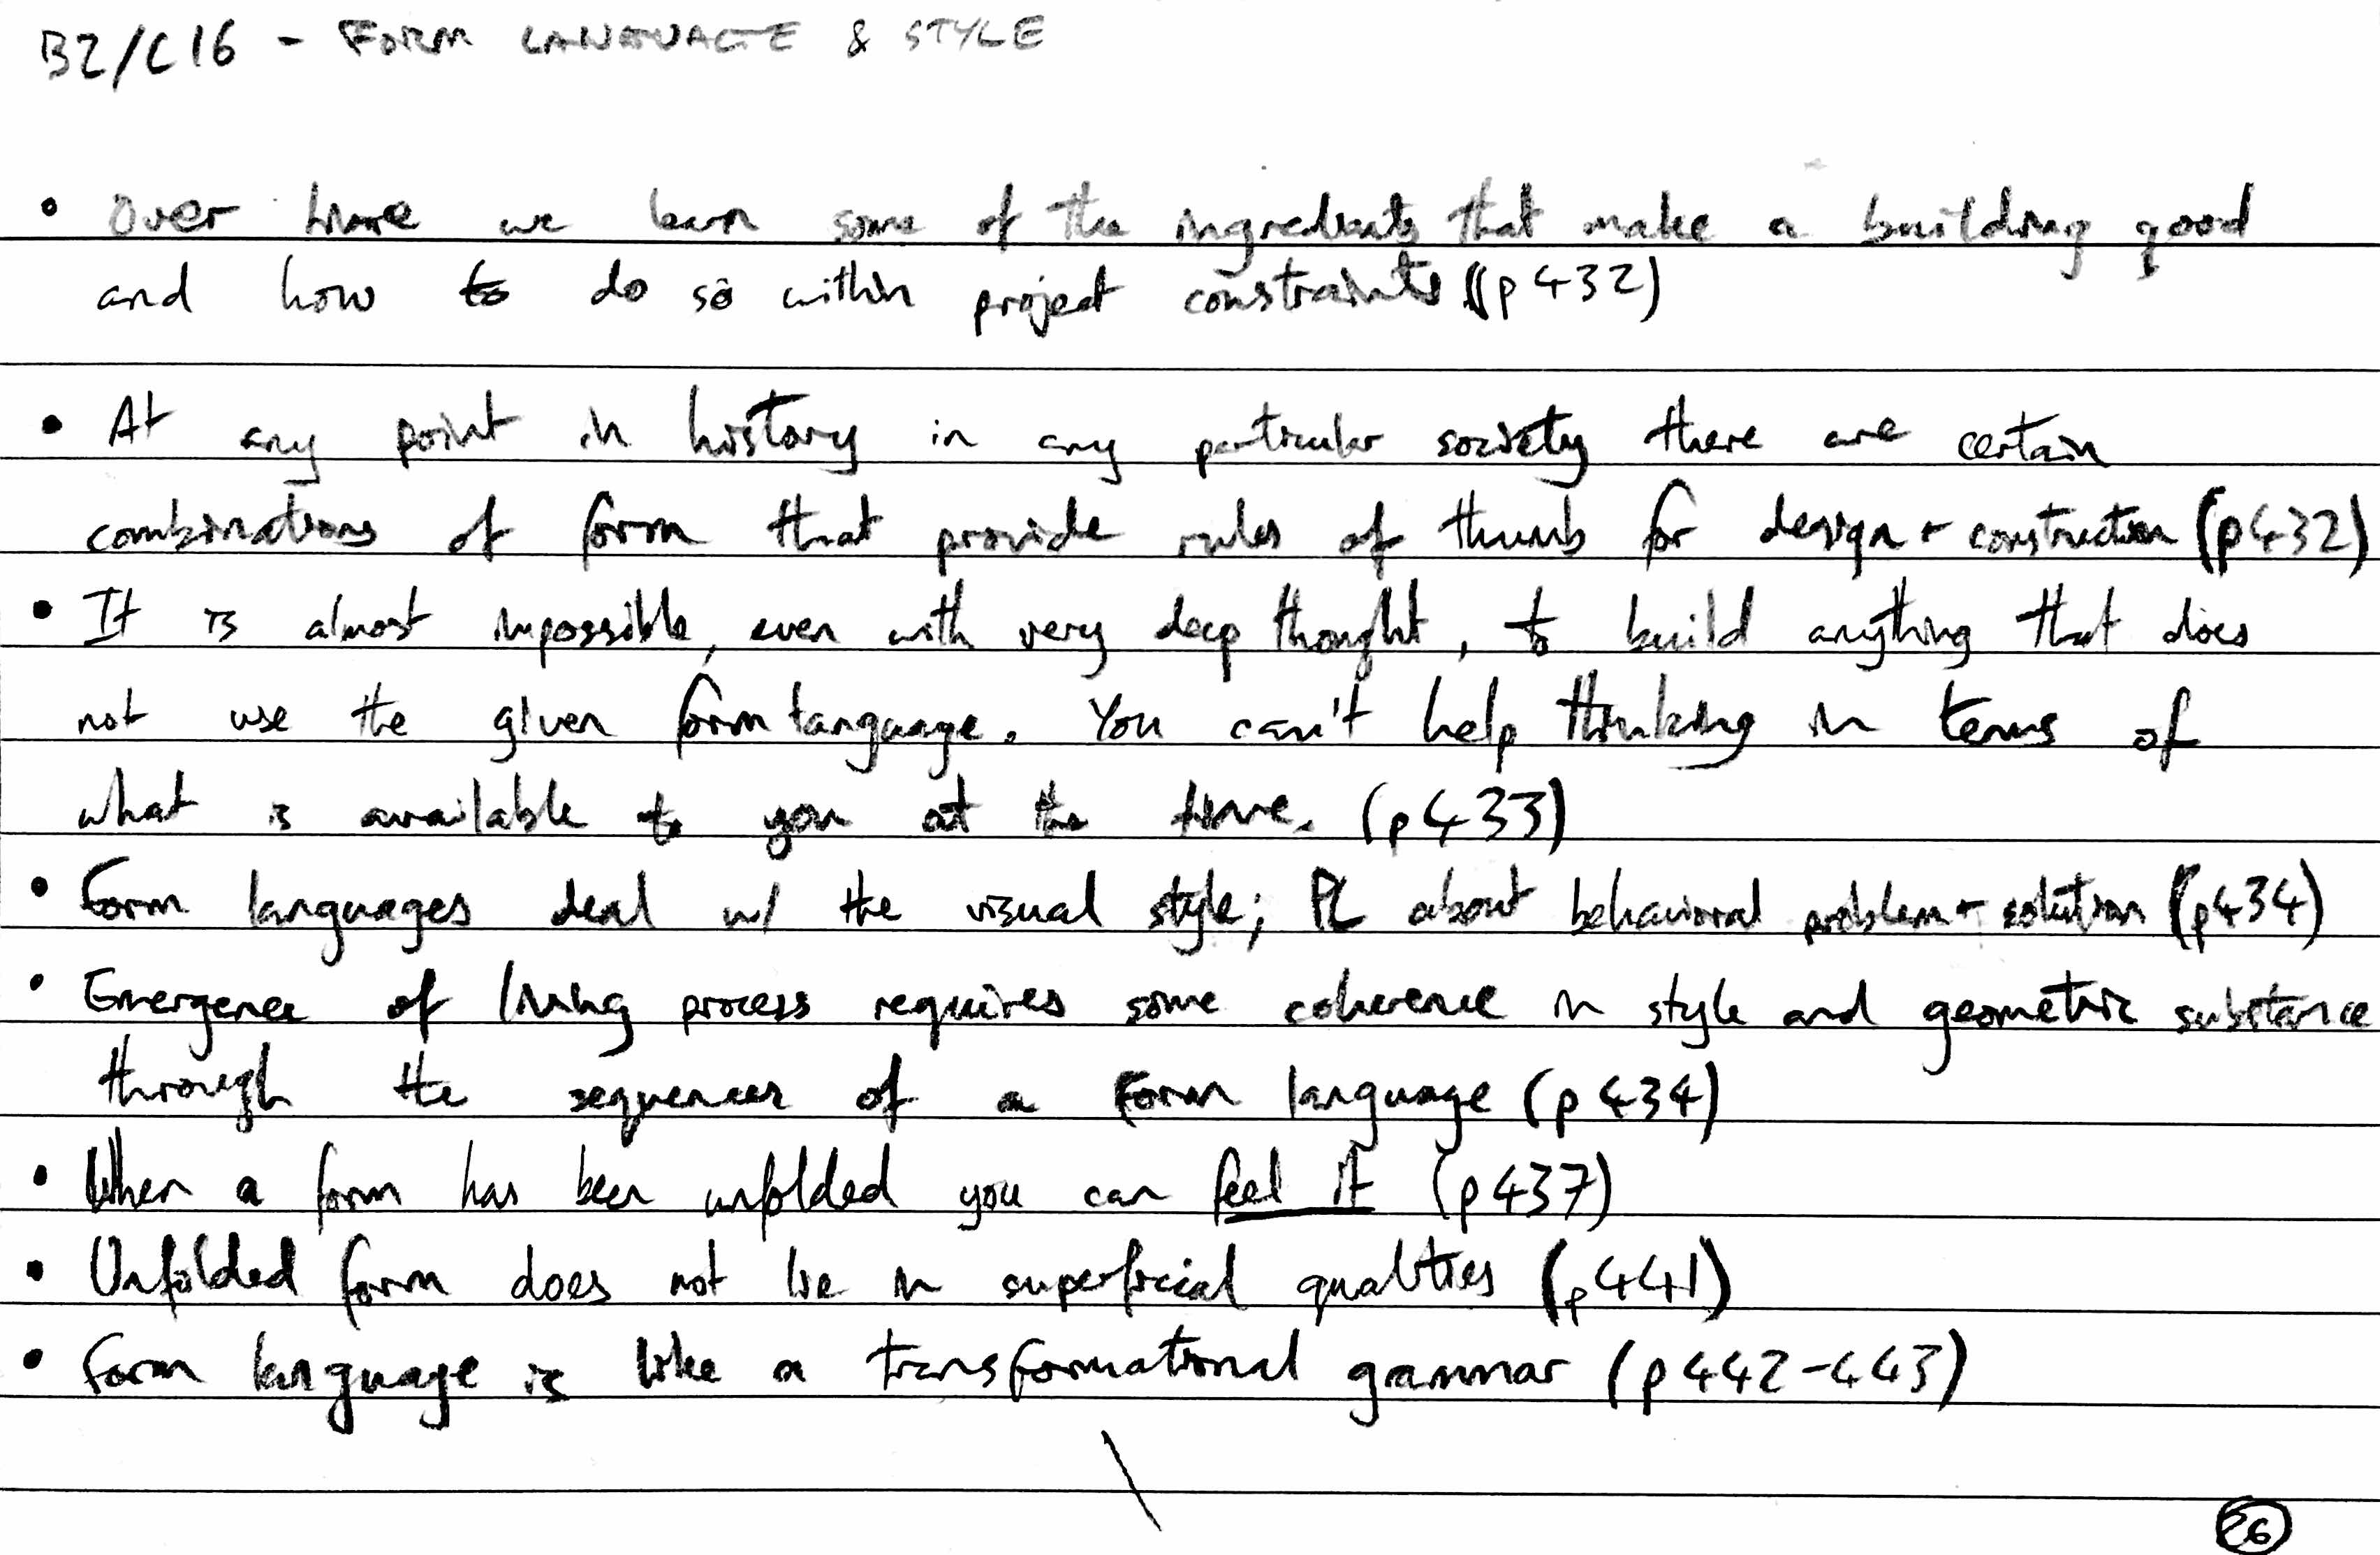 B2/C16 - FORM LANGUAGE & STYLE
• Over time we learn some of the ingredients that make a building good
and how to do so within project constraints (p432)
• At any point in history in any particular society there are certain
combinations of form that provide rules of thumb for design + construction (p432)
• It is almost impossible, even with very deep thought, to build anything that does
not use the given form language. You can't help thinking in terms of
what is available to you at the time. (p433)
• Form languages deal w/ the visual style; PL about behavioral problem + solution (p434)
• Emergence of living process requires some coherence in style and geometric substance
through the sequences of a form language (p434)
• When a form has been unfolded you can feel it (p437)
• Unfolded form does not lie in superficial qualities (p441)
• Form language is like a transformational grammar (p442-443)
26